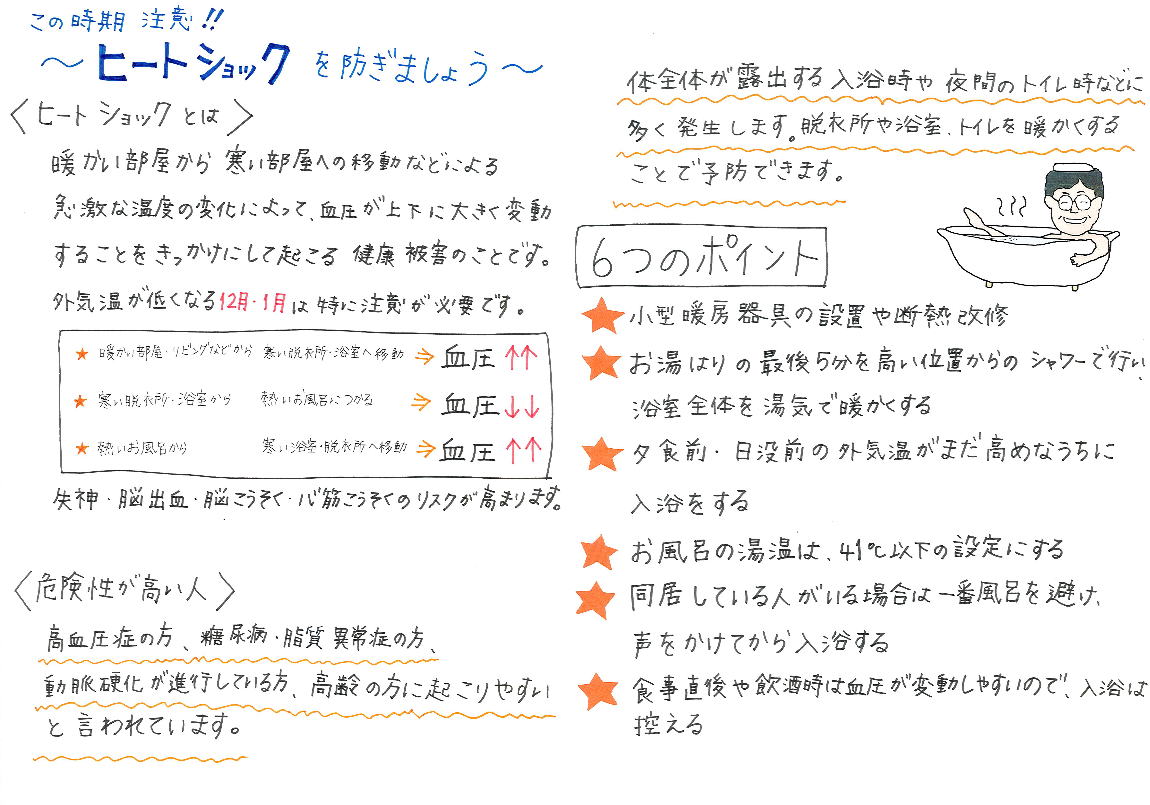 この時期 注意!!
～ヒートショックを防ぎましょう～
〈ヒートショックとは〉
暖かい部屋から寒い部屋への移動などによる
急激な温度の変化によって、血圧が上下に大きく変動
することをきっかけにして起こる 健康被害のことです。
外気温が低くなる12月・1月は特に注意が必要です。
★ 暖かい部屋・リビングなどから 寒い脱衣所・浴室へ移動 ⇒ 血圧 ↑↑
★ 寒い脱衣所・浴室から 熱いお風呂につかる ⇒ 血圧 ↓↓
★ 熱いお風呂から 寒い浴室・脱衣所へ移動 ⇒ 血圧 ↑↑
失神・脳出血・脳こうそく・心筋こうそくのリスクが高まります。
〈危険性が高い人〉
高血圧症の方、糖尿病・脂質異常症の方、
動脈硬化が進行している方、高齢の方に起こりやすい
と言われています。
体全体が露出する入浴時や夜間のトイレ時などに
多く発生します。脱衣所や浴室、トイレを暖かくする
ことで予防できます。
6つのポイント
★ 小型暖房器具の設置や断熱改修
★ お湯はりの最後5分を高い位置からのシャワーで行い、
浴室全体を湯気で暖かくする
★ 夕食前・日没前の外気温がまだ高めなうちに
入浴をする
★ お風呂の湯温は、41℃以下の設定にする
★ 同居している人がいる場合は一番風呂を避け、
声をかけてから入浴する
★ 食事直後や飲酒時は血圧が変動しやすいので、入浴は
控える